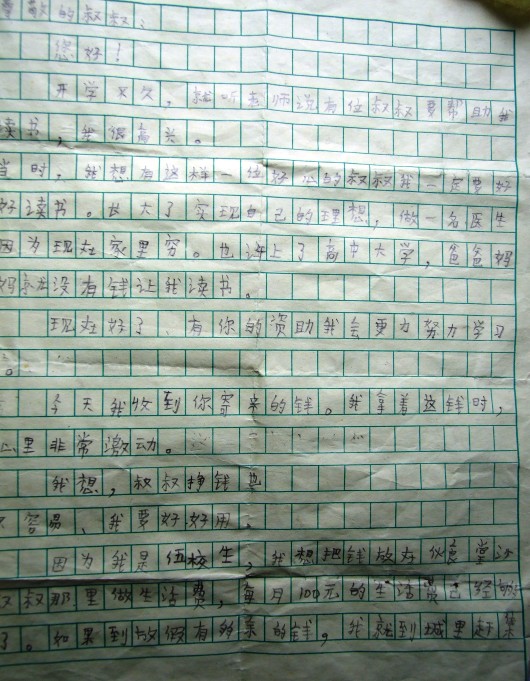 尊敬的叔叔：
您好！
开学不久，就听老师说有位叔叔要帮助我
读书，我很高兴。
当时，我想有这样一位好心的叔叔我一定要好
好读书。长大了实现自己的理想，做一名医生
因为现在家里穷。也许上了高中大学，爸爸妈
妈就没有钱让我读书。
现在好了、有你的资助我会更力努力学习
。
今天我收到你寄来的钱。我拿着这钱时，
心里非常激动。
我想，叔叔挣钱也
不容易、我要好好用。
因为我是住校生，我想把钱放在伙食堂
叔叔那里做生活费，每月100元的生活费已经够
了。如果到放假有的剩的钱，我就到城里赶集